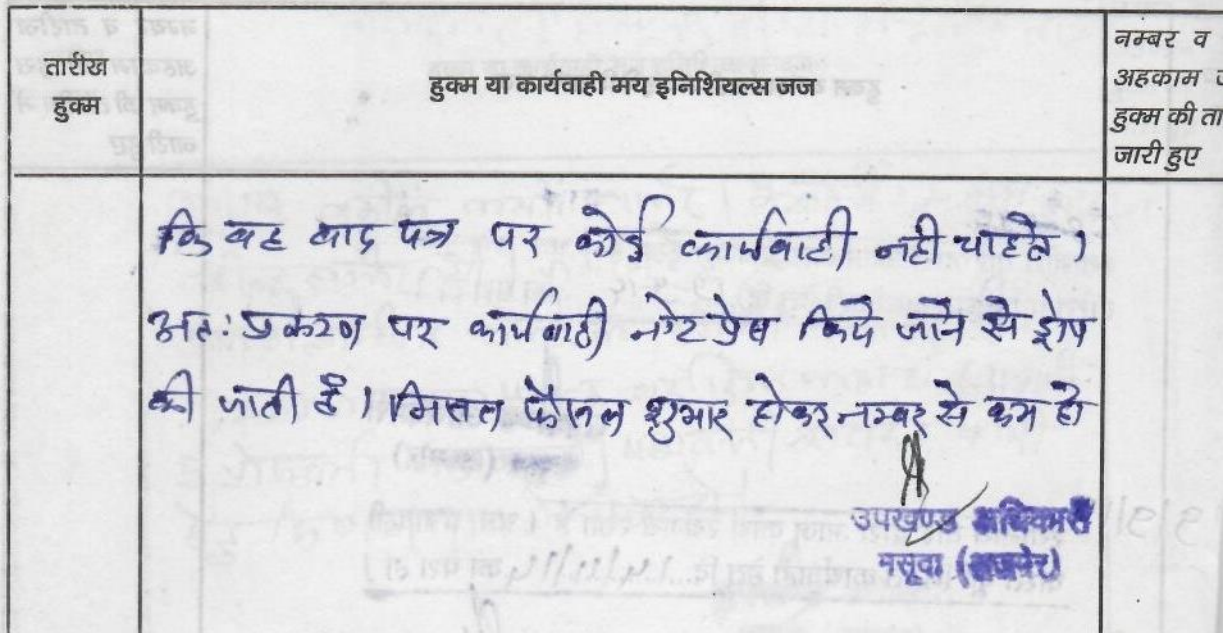 तारीख
हुक्म
हुक्म या कार्यवाही मय इनिशियल्स जज
नम्बर व
अहकाम
हुक्म की ता
जारी हुए
कि वह वाद पत्र पर कोई कार्यवाही नही चाहते।
अतः प्रकरण पर कार्यवाही नोट प्रेस किये जाने से ड्रोप
की जाती है। मिसल फैसल शुमार होकर नम्बर से कम हो
उपखण्ड अधिकारी